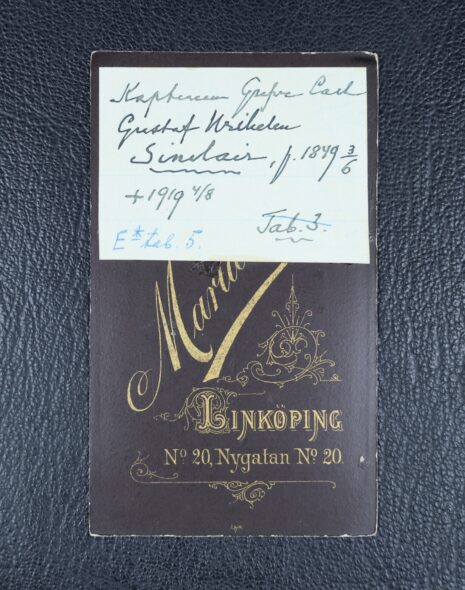 Kaptenen Grefve Carl
Gustaf Wilhelm
Sinclair, f. 1849 3/6
+ 1919 4/8
Tab. 3.
E** tab. 5.
Maria
LINKÖPING
No 20, Nygatan No 20.